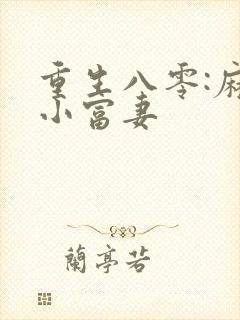 重生八零:麻
小富妻
蘭亭若